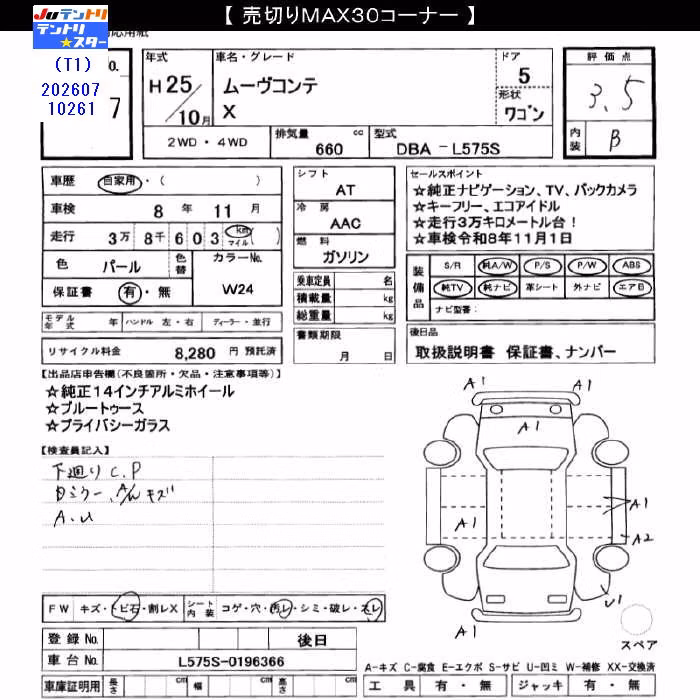 【 売切りMAX30コーナー 】
JUテントリ
テントリ
★スター
(T1)
202607
10261
No.
7
年式
H 25 / 10月
車名・グレード
ムーヴコンテ
X
ドア
5
形状
ワゴン
評価点
3.5
内装
B
2WD・4WD
排気量
660 cc
型式
DBA - L575S
車歴 自家用・( )
車検 8 年 11 月
走行 3万 8千 6 0 3 km マイル ( )
色 パール
色替
カラーNo.
W24
保証書 有・無
シフト
AT
冷房
AAC
燃料
ガソリン
乗車定員 名
積載量 kg
総重量 kg
セールスポイント
☆純正ナビゲーション、TV、バックカメラ
☆キーフリー、エコアイドル
☆走行3万キロメートル台！
☆車検令和8年11月1日
装備品
S/R 純A/W P/S P/W ABS
純TV 純ナビ 革シート 外ナビ エアB
ナビ型番：
モデル年式 年 ハンドル 左・右 ディーラー・並行
書類期限
月 日
後日品
取扱説明書 保証書、ナンバー
リサイクル料金 8,280 円 預託済
【出品店申告欄(不良箇所・欠品・注意事項等)】
☆純正14インチアルミホイール
☆ブルートゥース
☆プライバシーガラス
【検査員記入】
下廻り C.P
日ミラー、A/W キズ
A.U
A1
A1
A1
A1
A1
A2
A1
U1
スペア
FW キズ・トビ石・割レX
シート内装 コゲ・穴・汚レ・シミ・破レ・スレ
登録No. 後日
車台No. L575S-0196366
車庫証明用 長さ cm 幅 cm 高さ cm
A-キズ C-腐食 E-エクボ S-サビ U-凹ミ W-補修 XX-交換済
工具 有・無 ジャッキ 有・無